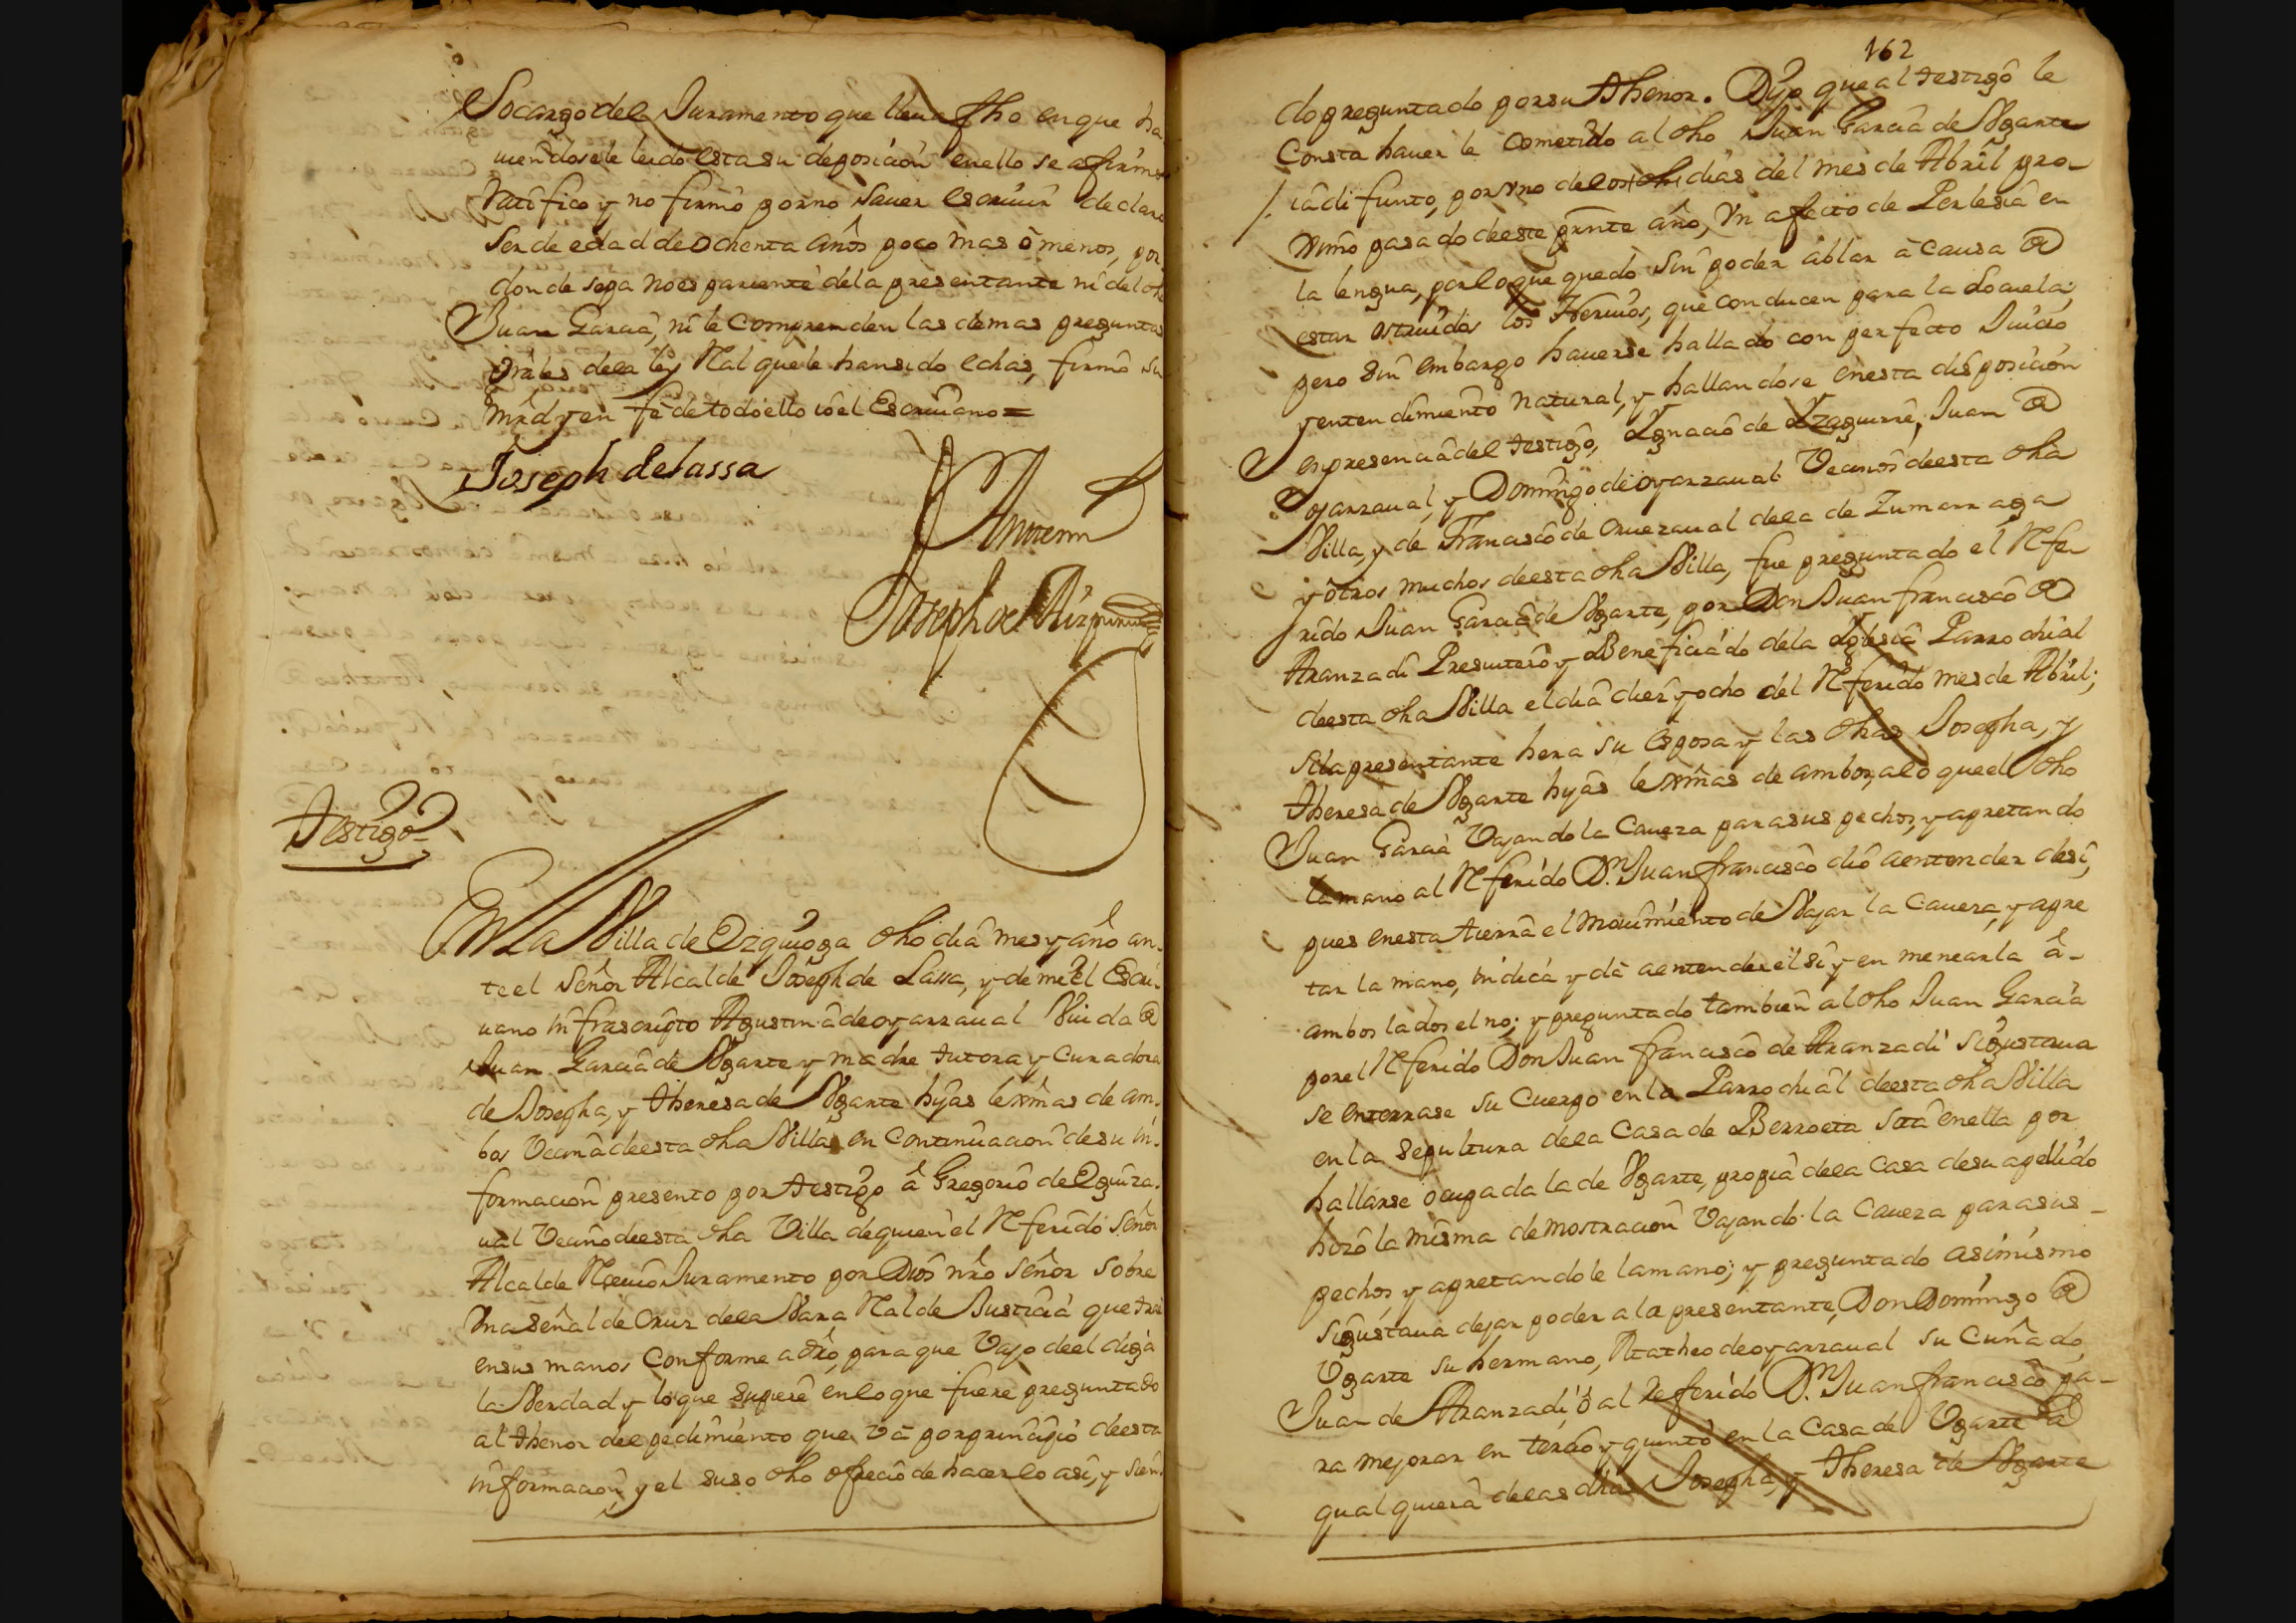 Socargo del Juramento que lleua fho en que ha
uiendosele leido esta su deposicion en ello se afirmo
Ratifico y no firmò por no sauer escriuir declarò
ser de edad de ochenta años poco mas ò menos, por
donde sepa no es pariente de la presentante ni del dho
Juan Garcia, ni le comprenden las demas preguntas
grâles de la ley Ral que le han sido echas, firmò su
mrd y en feè de todo ello io el Escriuano =
Joseph de lassa
Antemi
Joseph de Aizpuru
Testigo
En La Villa de Ezquioga dho dia mes y año an-
te el señor Alcalde Joseph de Lassa, y de mi el Escri-
uano infrascripto Agustina de oyarzaual Viuda de
Juan Garcia de Vgarte y madre tutora y curadora
de Josepha, y Theresa de Vgarte hijas lexmas de am-
bos Vecina de esta dha Villa en continuacion de su in-
formacion presento por testigo â Gregorio de Eguiza-
ual Vecino de esta dha Villa de quien el Referido señor
Alcalde Reciuiò Juramento por Dios nrô señor sobre
Vna señal de Cruz de la Vara Ral de Justicia que trae
en sus manos conforme a drô, para que Vajo de el diga
la Verdad y lo que supiere en lo que fuere preguntado
al thenor del pedimiento que Và por principio de esta
informacion, y el suso dho ofrecio de hacerlo asi, y sien-
162
do preguntado por su thenor. Dijo que al testigo le
Consta hauer le cometido al dho Juan Garcia de Vgarte
ia difunto, por vno de los dias del mes de Abril pro-
ximo pasado de este prnte año, Vn afecto de Perlesia en
la lengua, por lo que quedo sin poder ablar à causa de
estar ostruidos los Neruios, que conducen para la Loquela;
pero sin embargo hauerse hallado con perfecto Juicio
y entendimiento natural, y hallandose en esta disposicion
en presencia del testigo, Ygnacio de Yzaguirre, Juan de
oyarzaual, y Domingo de oyarzaual Vecinos de esta dha
Villa, y de Francisco de Cruzaual de la de Zumarraga
y otros muchos de esta dha Villa, fue preguntado el Refe-
rido Juan Garcia de Vgarte, por Don Juan francisco de
Aranzadi Presuitero y Beneficiado de la Yglesia Parrochial
de esta dha Villa el dia diez y ocho del Referido mes de Abril;
si la presentante hera su esposa y las dhas Josepha, y
Theresa de Vgarte hijas lexmas de ambos, a lo que el dho
Juan Garcia Vajando la Caueza para sus pechos, y apretando
la mano al Referido Dn Juan francisco diò a entender de si,
pues en esta tierra el mouimiento de Vajar la Caueza, y apre
tar la mano, indica y dà a entender el si y en menearla â-
ambos lados el no; y preguntado tambien al dho Juan Garcia
por el Referido Don Juan francisco de Aranzadi si gustaua
se enterrase su Cuerpo en la Parrochial de esta dha Villa
en la sepultura de la Casa de Berroeta sita en ella por
hallarse ocupada la de Vgarte, propia de la Casa de su apellido
hizo la misma demostracion Vajando la Caueza para sus-
pechos y apretandole la mano; y preguntado asimismo
si gustaua dejar poder a la presentante, Don Domingo de
Vgarte su hermano, Matheo de oyarzaual su cuñado,
Juan de Aranzadi, ò al Referido Dn Juan francisco pa-
ra mejorar en tercio y quinto en la Casa de Vgarte â
qualquiera de las dhas Josepha, y Theresa de Vgarte